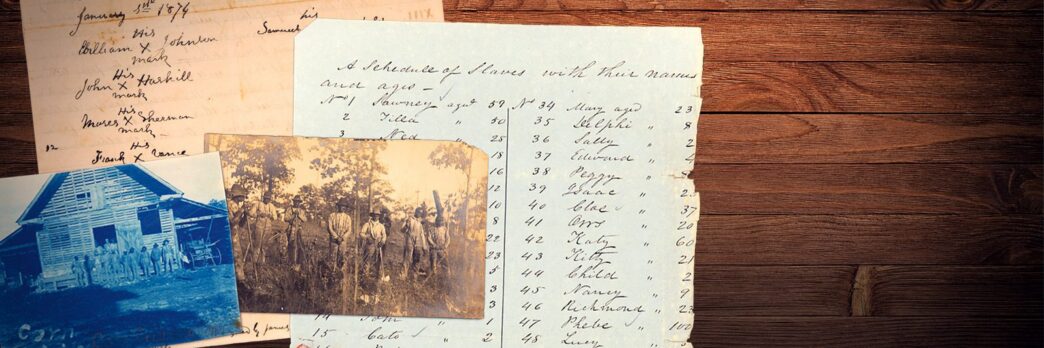 January 1st 1874
His
William X Johnson
mark
His
John X Haskill
mark
His
Moses X Sherman
mark
His
Frank X Vance
his
A Schedule of Slaves with their names
and ages –
No 1 Sawney aged 59
2 Tilla " 50
3 Ned 25
18
16
12
10
8
22
23
5
3
3
1
15 Cato " 2
No 34 Mary aged 23
35 Delphi " 8
36 Sally " 2
37 Edward " 4
38 Peggy "
39 Isaac "
40 Cloe " 37
41 " 20
42 Katy " 60
43 Kitty " 21
44 Child " 2
45 Nancy " 9
46 Richmond " 23
47 Phebe " 100
48 Lucy